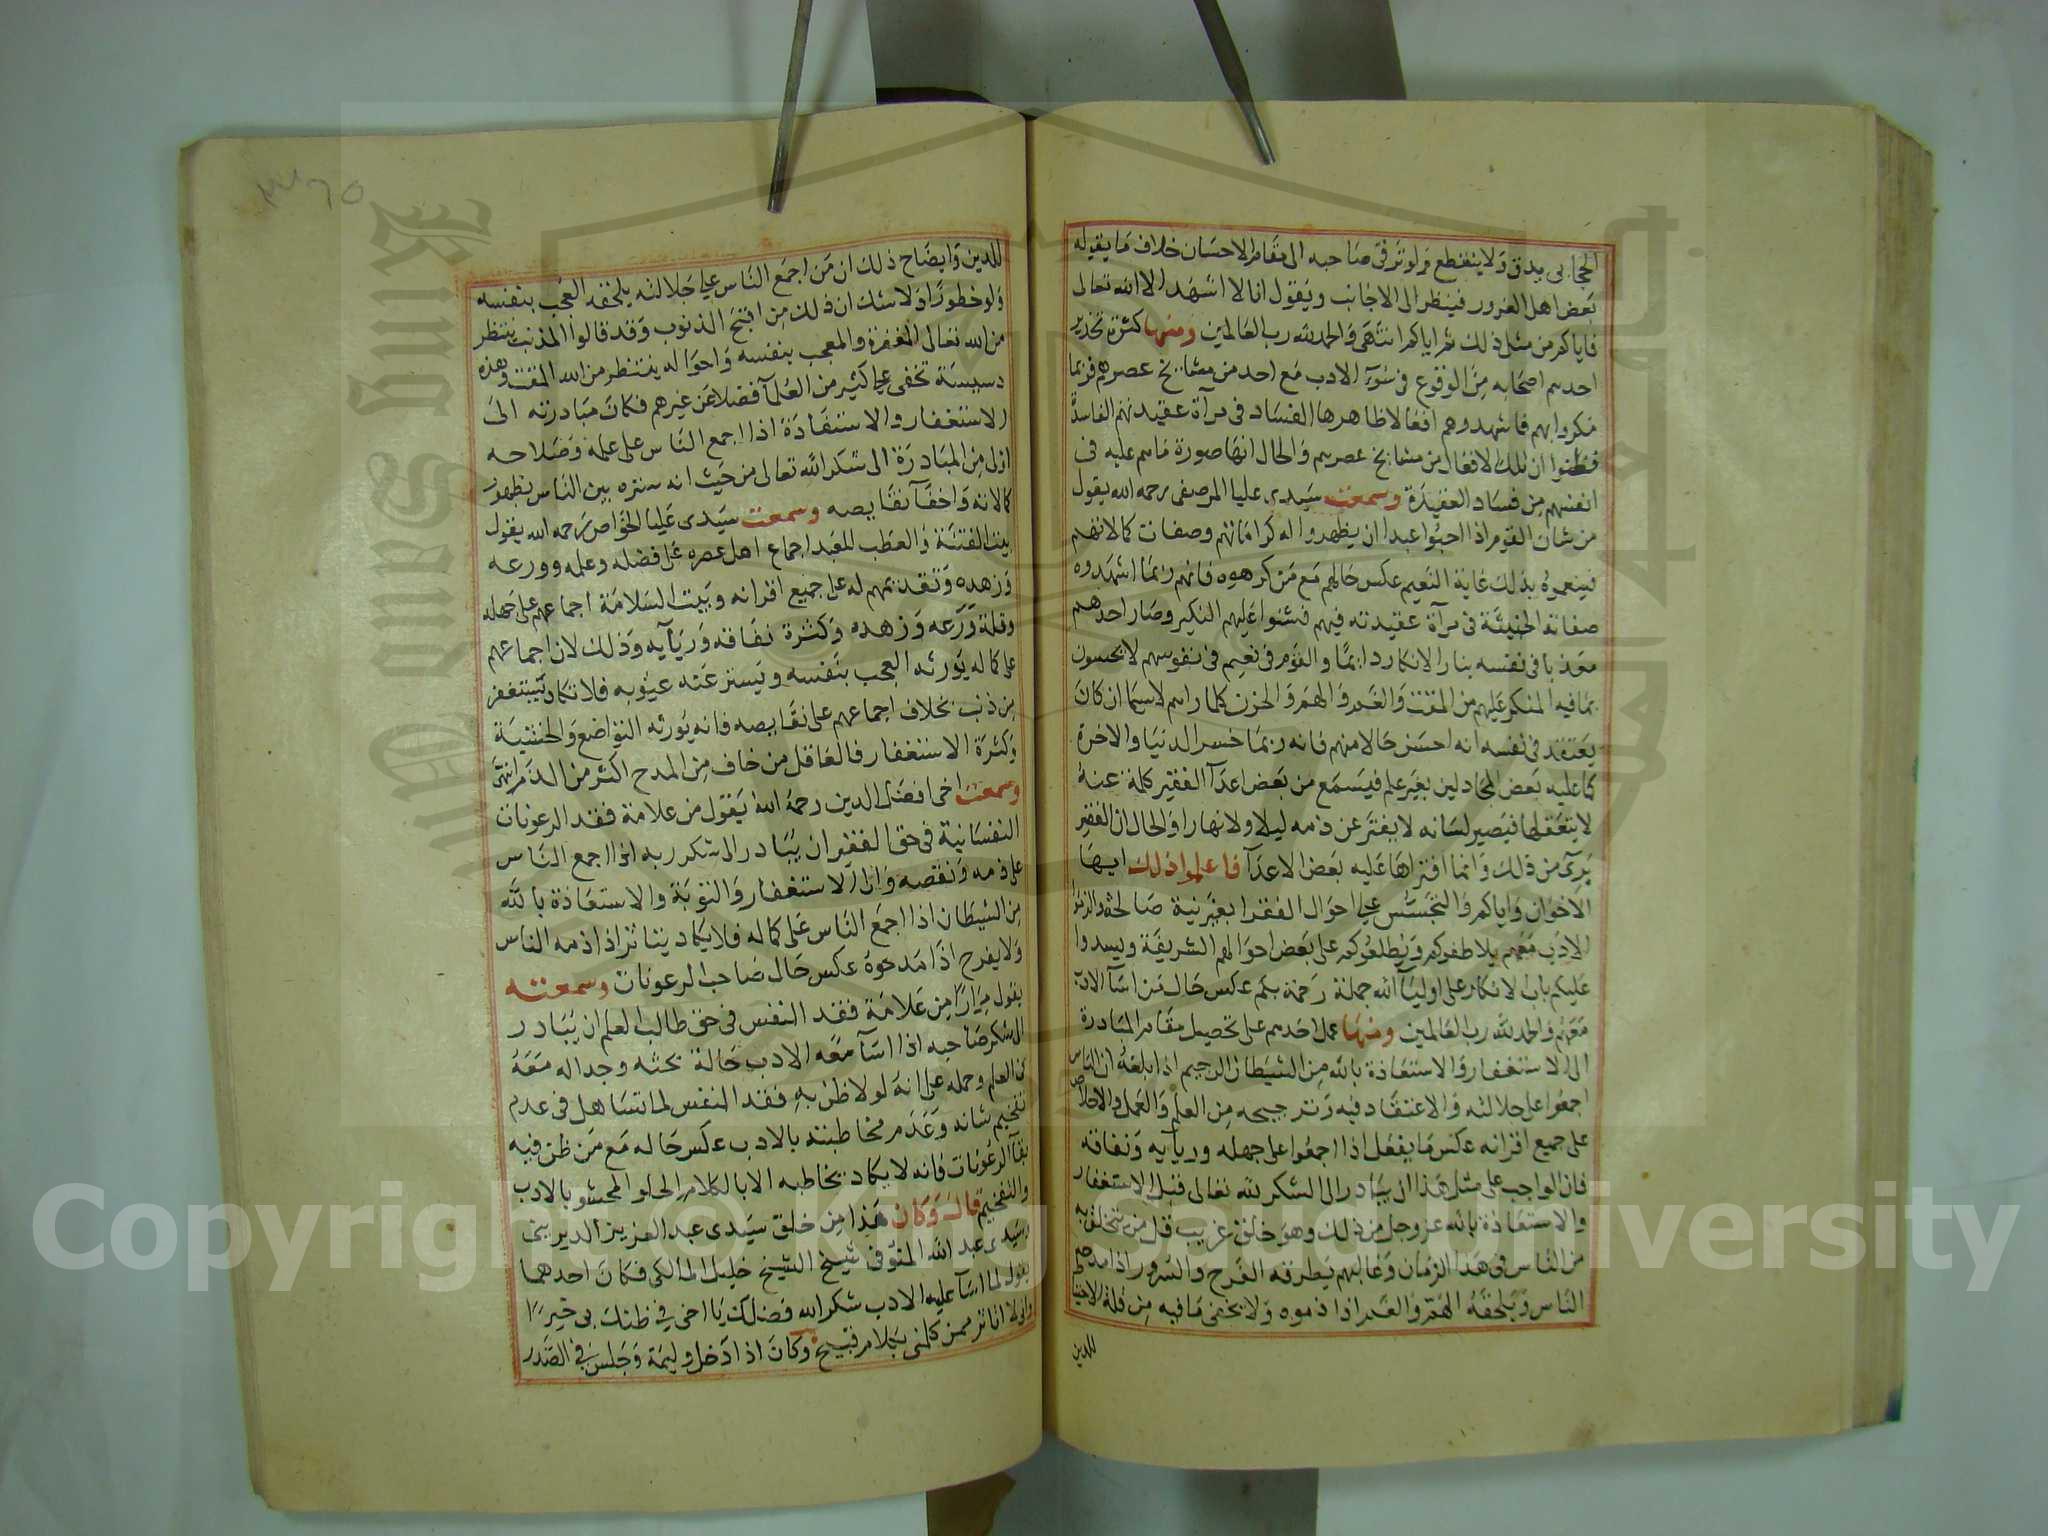 الحجابي يدق ولا ينقطع ولو ترقى صاحبه الى مقام الاحسان خلاف ما يقوله
بعض اهل الغرور فينظر الى الاجانب ويقول انا لا اشهد الا الله تعالى
فاياكم من مثل ذلك ثم اياكم انتهى والحمد لله رب العالمين ومنها كثرة تحذير
احدهم اصحابه من الوقوع في سوء الادب مع احد من مشايخ عصرهم فربما
مكروا بهم فاشهدوهم افعالا ظاهرها الفساد في مرآة عقيدتهم الفاسدة
فظنوا ان تلك الافعال من مشايخ عصرهم والحال انها صورة ما هم عليه في
انفسهم من فساد العقيدة وسمعت سيدي عليا المرصفي رحمه الله يقول
من شان القوم اذا احبوا عبدا ان يظهروا له كراماتهم وصفات كمالاتهم
فينعموه بذلك غاية النعيم عكس حالهم مع من كرهوه فانهم ربما اشهدوه
صفاته الخبيثة في مرآة عقيدته فيهم فشنوا عليهم النكير وصار احدهم
معذبا في نفسه بنار الانكار دايما والقوم في نعيم في نفوسهم لا يحسون
بما فيه المنكر عليهم من المقت والغم والهم والحزن كلما راهم لاسيما ان كان
يعتقد في نفسه انه احسن حالا منهم فانه ربما خسر الدنيا والاخرة
كما عليه بعض المجادلين بغير علم فيسمع من بعض اعدآ الفقير كلمة عنه
لا يتعقلها فيصير لسانه لا يفتر عن ذمه ليلا ولا نهارا والحال ان الفقير
برئ من ذلك وانما افتراها عليه بعض الاعدآ فاعلموا ذلك ايها
الاخوان واياكم والتجسس على احوال الفقرا بغير نية صالحة والزموا
الادب معهم يلاطفوكم ويطلعوكم على بعض احوالهم الشريفة ويسدوا
عليكم باب الانكار على اوليآ الله جملة رحمة بكم عكس حال من اسآ الادب
معهم والحمد لله رب العالمين ومنها عمل احدهم على تحصيل مقام المبادرة
الى الاستغفار والاستعاذة بالله من الشيطان الرجيم اذا بلغه ان الناس
اجمعوا على جلالته والاعتقاد فيه وترجيحه من العلم والعمل والاخلاص
على جميع اقرانه عكس ما يفعل اذا اجمعوا على جهله وريآيه ونفاقه
فان الواجب على مثل هذا ان يبادر الى الشكر لله تعالى قبل الاستغفار
والاستعاذة بالله عز وجل من ذلك وهو خلق غريب قل من يتخلق به
من الناس في هذا الزمان وغالبهم يطرقه الفرح والسرور اذا مدحه
الناس ويلحقه الهم والغم اذا ذموه ولا يخفى ما فيه من قلة الاحتياط
للدين
للدين وايضاح ذلك ان من اجمع الناس على جلالته يلحقه العجب بنفسه
ولو خطورا ولا شك ان ذلك من اقبح الذنوب وقد قالوا المذنب ينتظر
من الله تعالى المغفرة والمعجب بنفسه واحواله ينتظر من الله المقت وهذه
دسيسة تخفى على كثير من العلمآ فضلا عن غيرهم فكان مبادرته الى
الاستغفار والاستعاذة اذا اجمع الناس على علمه وصلاحه
اولى من المبادرة الى شكر الله تعالى من حيث انه ستره بين الناس بظهور
كمالاته واخفآ نقايصه وسمعت سيدي عليا الخواص رحمه الله يقول
بيت الفتنة والعطب للعبد اجماع اهل عصره على فضله وعلمه وورعه
وزهده وتقديمهم له على جميع اقرانه وبيت السلامة اجماعهم على جهله
وقلة ورعه وزهده وكثرة نفاقه وريآيه وذلك لان اجماعهم
على كماله يورثه العجب بنفسه ويستر عنه عيوبه فلا يكاد يستغفر
من ذنب بخلاف اجماعهم على نقايصه فانه يورثه التواضع والخشية
وكثرة الاستغفار فالعاقل من خاف من المدح اكثر من الذم انتهى
وسمعت اخي افضل الدين رحمه الله يقول من علامة فقد الرعونات
النفسانية في حق الفقير ان يبادر الى شكر ربه اذا اجمع الناس
على ذمه ونقصه والى الاستغفار والتوبة والاستعاذة بالله
من الشيطان اذا اجمع الناس على كماله فلا يكاد يتاثر اذا ذمه الناس
ولا يفرح اذا مدحوه عكس حال صاحب الرعونات وسمعته
يقول مرارا من علامة فقد النفس في حق طالب العلم ان يبادر
الى شكر صاحبه اذا اسآ معه الادب حالة بحثه وجداله معه
في العلم وحمله على انه لولا ظن به فقد النفس لما تساهل في عدم
تفخيم شانه وعدم مخاطبته بالادب عكس حاله مع من ظن فيه
بقآ الرعونات فانه لا يكاد يخاطبه الا بالكلام الحلو المحشو بالادب
والتفخيم قال وكان هذا من خلق سيدي عبد العزيز الديريني
وسيدي عبد الله المنوفي شيخ الشيخ خليل المالكي فكان احدهما
يقول لما اسآ عليه الادب شكر الله فضلك يا اخي في ظنك بي خيرا
واني لا اتاثر ممن كلمني بكلام قبيح وكان اذا دخل وليمة وجلس في الصدر
Copyright © King Saud University